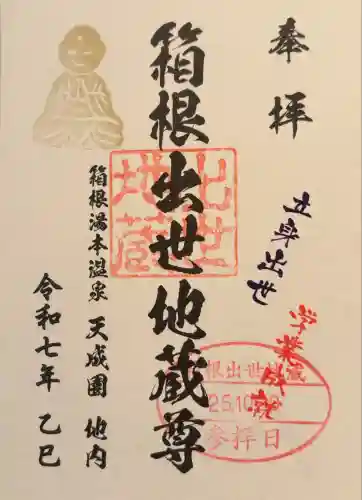 奉拝
立身出世
学業成就
箱根出世地蔵尊
出世
地蔵
箱根湯本温泉 天成園 地内
令和七年 乙巳
根出世地蔵
25.10
参拝日